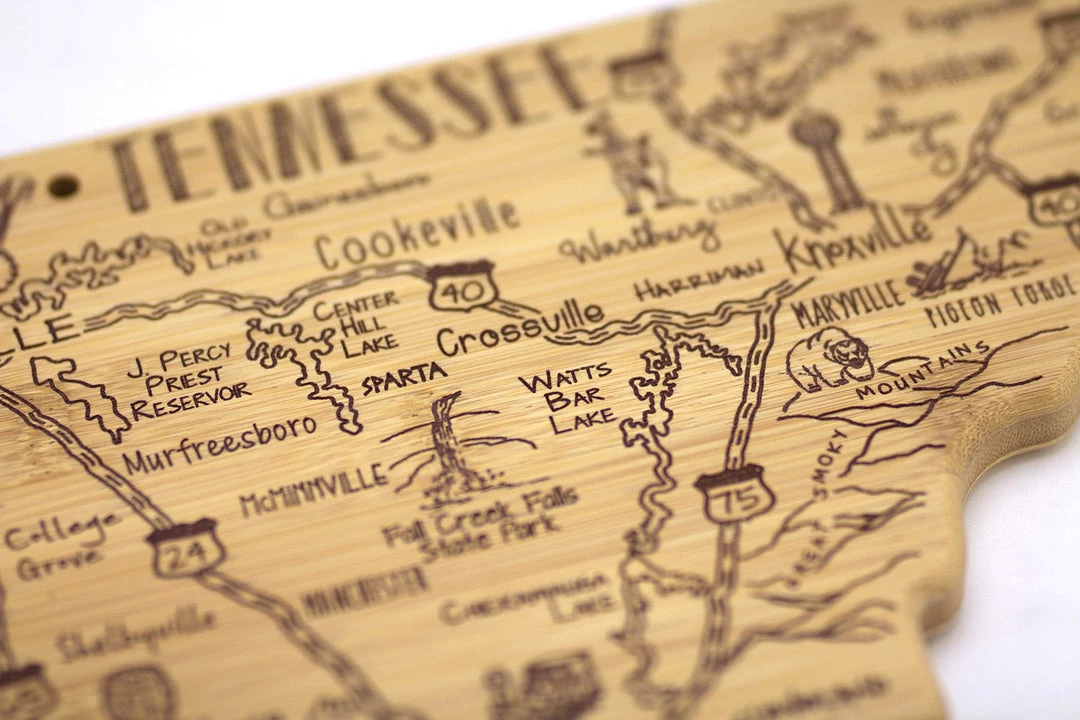 TENNESSEE
Gainesboro
OLD
HICKORY
LAKE
Cookeville
Wartburg
CLINTON
Knoxville
Morristown
40
40
LE
CENTER
HILL
LAKE
Crossville
HARRIMAN
MARYVILLE
PIGEON FORGE
J. PERCY
PRIEST
RESERVOIR
SPARTA
WATTS
BAR
LAKE
GREAT SMOKY MOUNTAINS
Murfreesboro
McMINNVILLE
75
College
Grove
24
Fall Creek Falls
State Park
MANCHESTER
CHICKAMAUGA
LAKE
Shelbyville